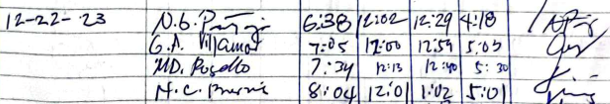 12-22-23 N.G. 6:38 12:02 12:29 4:18
G.A. Villamor 7:05 12:00 12:59 5:03
MD. Rosello 7:34 12:13 12:40 5:30
H.C. 8:04 12:01 1:02 5:01